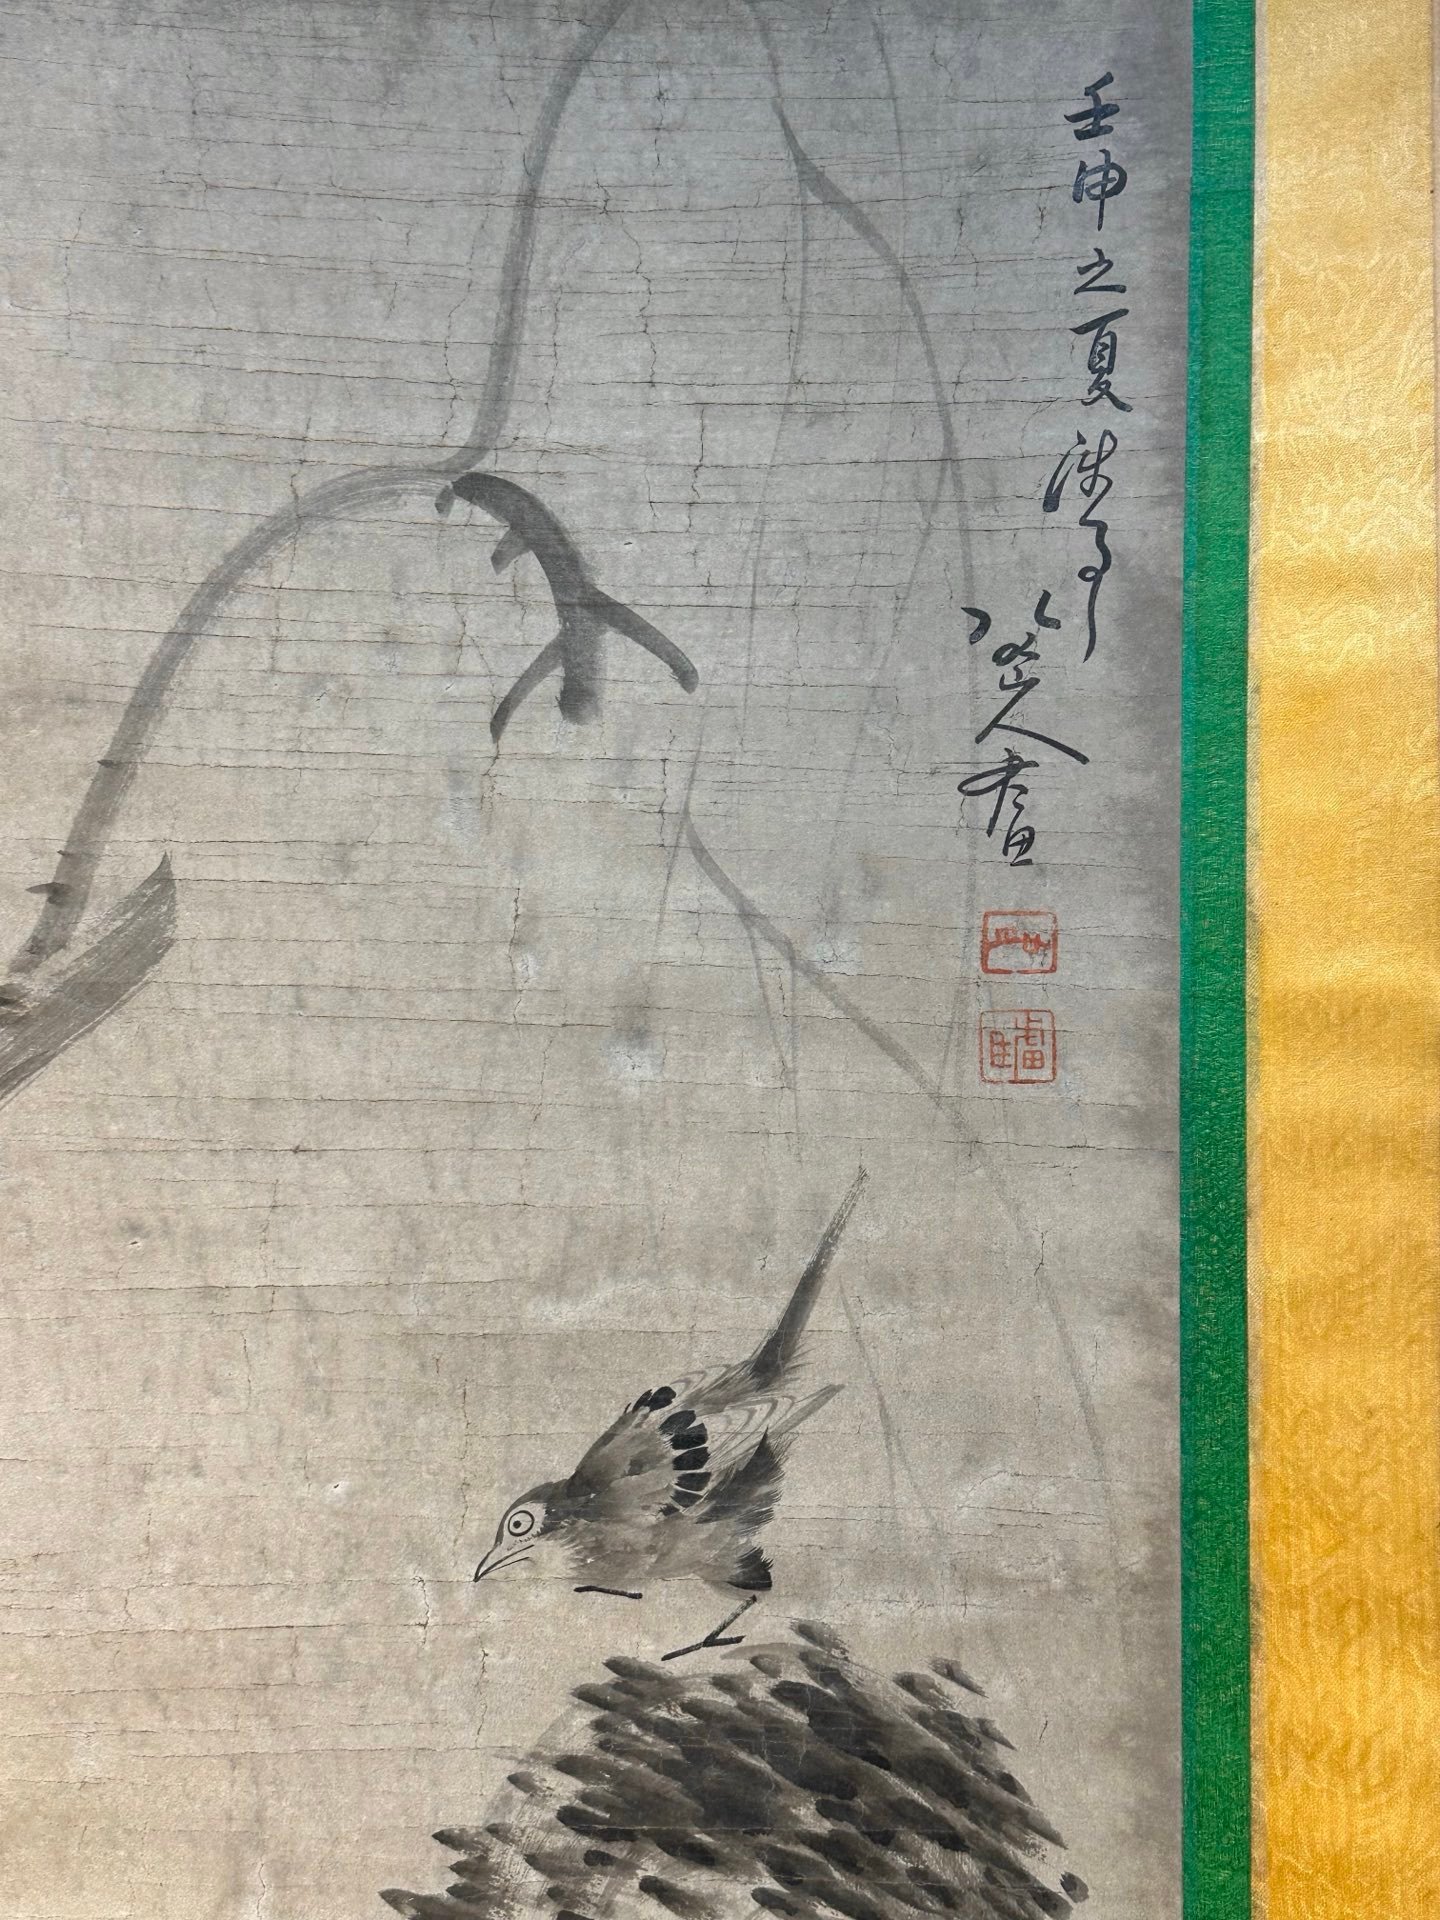 壬申之夏涉事
八大山人畫